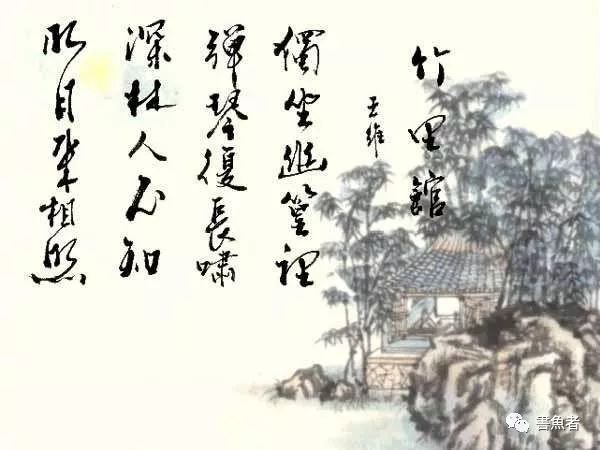 竹里館
王維
獨坐幽篁裡
彈琴復長嘯
深林人不知
明月來相照
書魚者